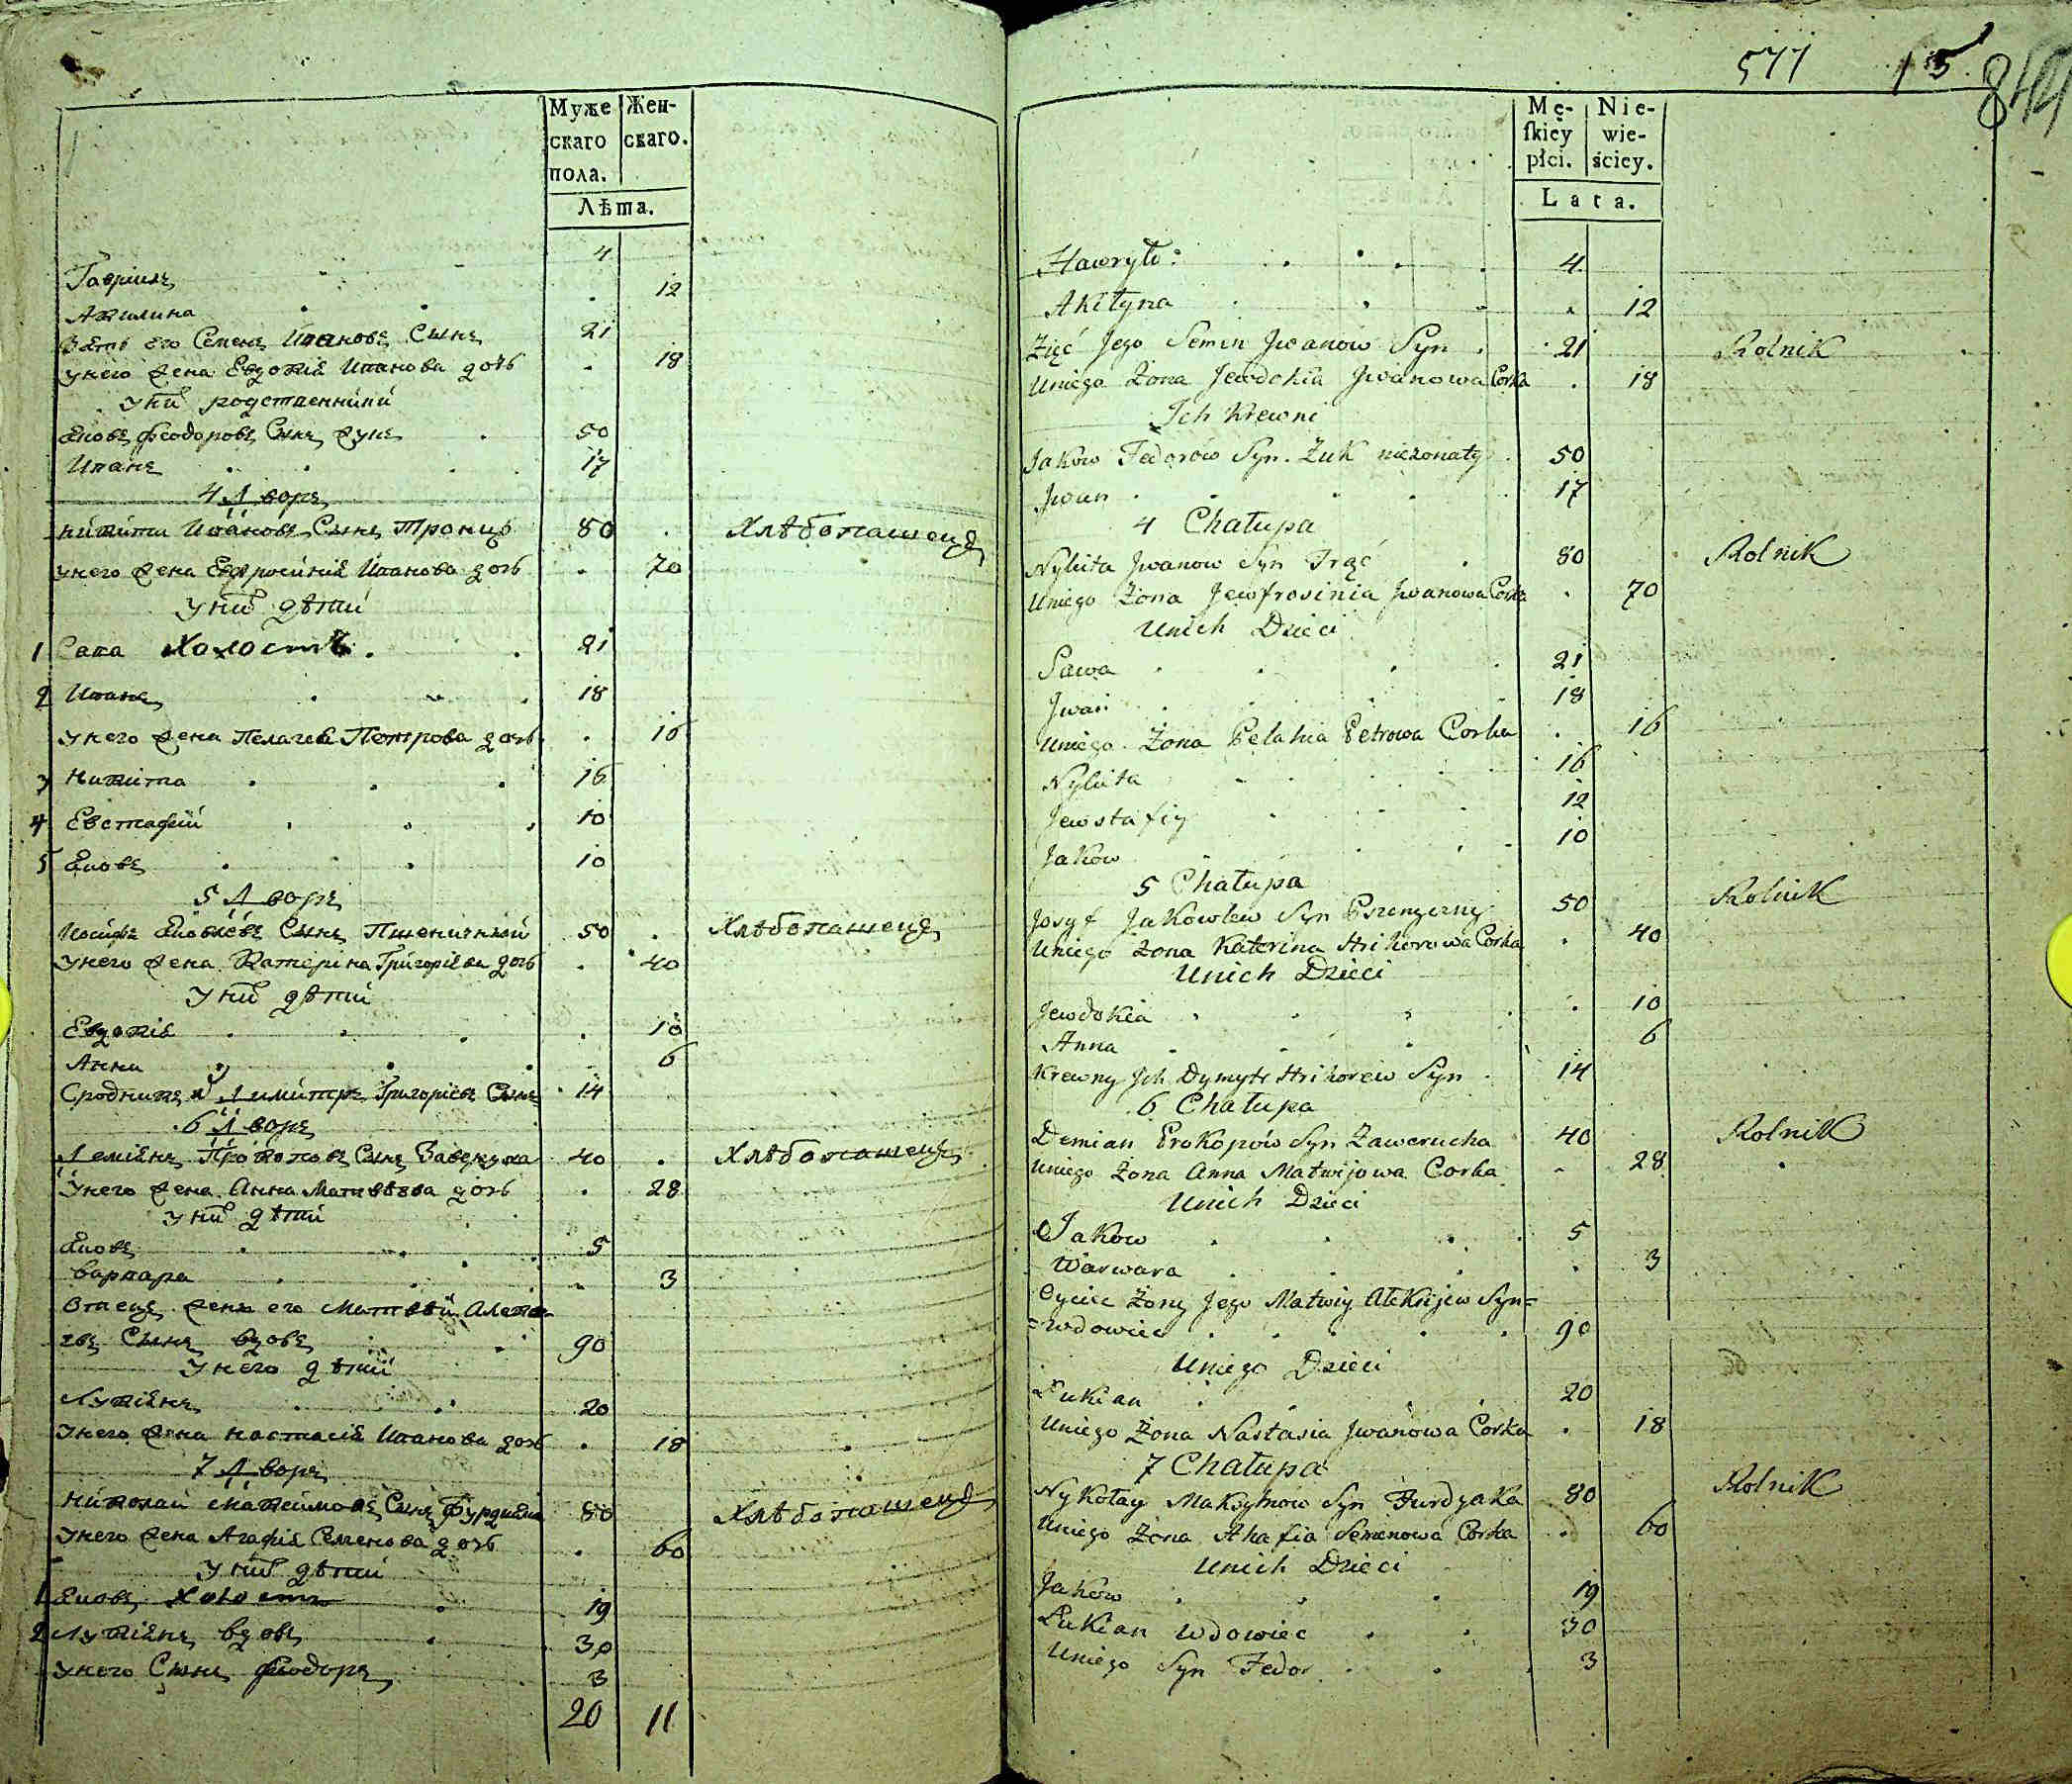 Муже
скаго
пола.
Жен-
скаго.
Лѣта.
Гавріилъ 4
Акилина 12
Зять его Семенъ Ивановъ Сынъ 21
унего жена Евдокія Иванова дочь 18
уних родственники
Яковъ Феодоровъ Сынъ Жукъ 50
Иванъ 17
4 Дворъ
Никита Ивановъ Сынъ 80 Хлѣбопашецъ
унего жена Евфросинія Иванова дочь 70
уних дѣти
1 Сава Холостъ 21
2 Иванъ 18
унего жена Пелагея Петрова дочь 16
3 Никита 16
4 Евстафій 10
5 Яковъ 10
5 Дворъ
Иосифъ Яковлевъ Сынъ Пшеничный 50 Хлѣбопашецъ
унего жена Катерина Григоріева дочь 40
уних дѣти
Евдокія 10
Анна 6
Сродникъ Димитръ Григоріевъ Сынъ 14
6 Дворъ
Деміянъ Прокоповъ Сынъ Заверуха 40 Хлѣбопашецъ
Унего жена Анна Матвѣева дочь 28
уних дѣти
Яковъ 5
Варвара 3
Отецъ жены его Матвѣй Алексѣ-
евъ Сынъ вдовъ 90
Унего дѣти
Лукіянъ 20
Унего жена Настасія Иванова дочь 18
7 Дворъ
Николай Максимовъ Сынъ Фурдыяка 80 Хлѣбопашецъ
Унего жена Агафія Семенова дочь 60
Уних дѣти
1 Яковъ Холостъ 19
2 Лукіянъ вдовъ 30
Унего Сынъ Феодоръ 3
20 11
577 15
844
Mę-
ſkiey
płci.
Nie-
wie-
ściey.
Lata.
Hawryło 4
Akilyna 12
Zięć Jego Semen Jwanow Syn 21 Rolnik
Uniego Żona Jewdokia Jwanowa Corka 18
Ich Krewni
Jakow Fedorów Syn Żuk nieżonaty 50
Jwan 17
4 Chałupa
Nykita Jwanow Syn Trąć 80 Rolnik
Uniego Żona Jewfrosinia Jwanowa Corka 70
Unich Dzieci
Sawa 21
Jwan 18
Uniego Żona Pelahia Petrowa Corka 16
Nykita 16
Jewstafiy 12
Jakow 10
5 Chałupa
Josyf Jakowlew Syn Pszenyczny 50 Rolnik
Uniego Żona Katerina Hrihorowa Corka 40
Unich Dzieci
Jewdokia 10
Anna 6
Krewny Jch Dymytr Hrihorew Syn 14
6 Chałupa
Demian Prokopów Syn Zawerucha 40 Rolnik
Uniego Żona Anna Matwijowa Corka 28
Unich Dzieci
Jakow 5
Warwara 3
Oyciec Żony Jego Matwiy Aleksijew Syn=
=wdowiec 90
Uniego Dzieci
Łukian 20
Uniego Żona Nastasia Jwanowa Corka 18
7 Chałupa
Nykołay Maksymow Syn Furdyaka 80 Rolnik
Uniego Żona Ahafia Semenowa Corka 60
Unich Dzieci
Jaków 19
Łukian Wdowiec 30
Uniego Syn Fedor 3